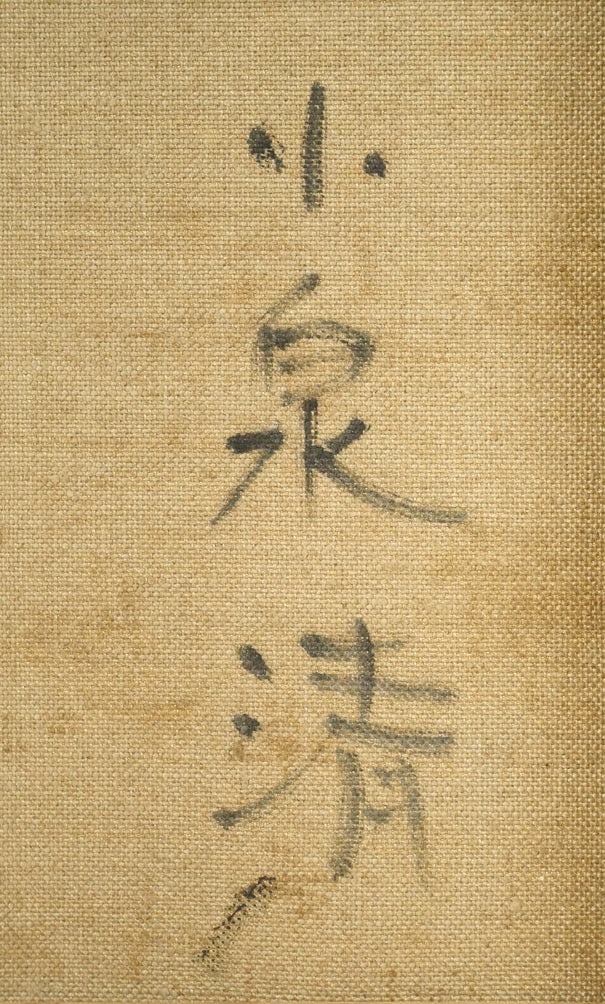 小泉清